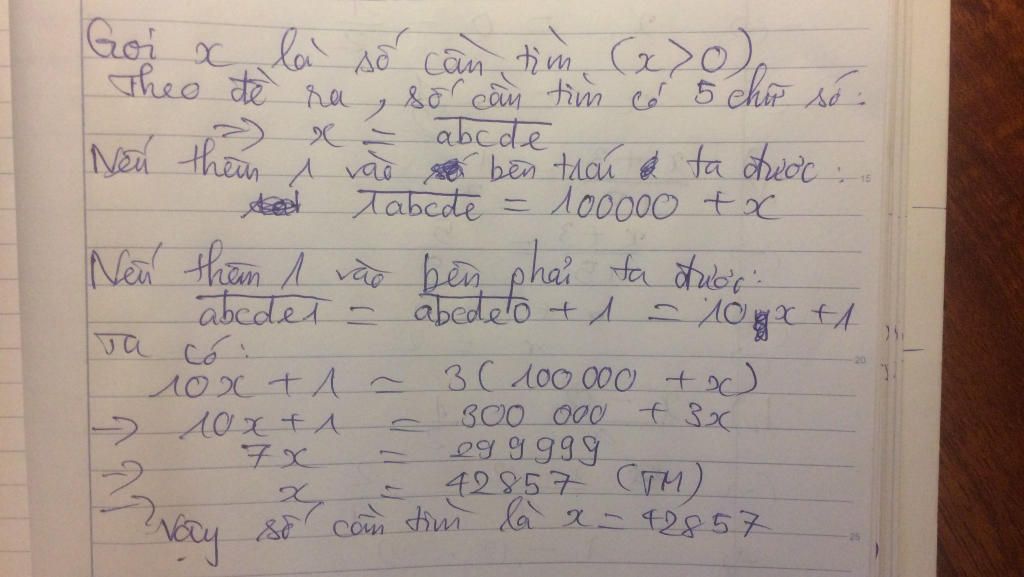 Gọi x là số cần tìm (x>0)
Theo đề ra, số cần tìm có 5 chữ số:
=> x = abcde
Nếu thêm 1 vào bên trái ta được:
1abcde = 100000 + x
Nếu thêm 1 vào bên phải ta được:
abcde1 = abcde0 + 1 = 10x+1
Ta có:
10x + 1 = 3(100000 + x)
-> 10x+1 = 300 000 + 3x
=> 7x = 299999
=> x = 42857 (TM)
Vậy số cần tìm là x = 42857
15
20
25